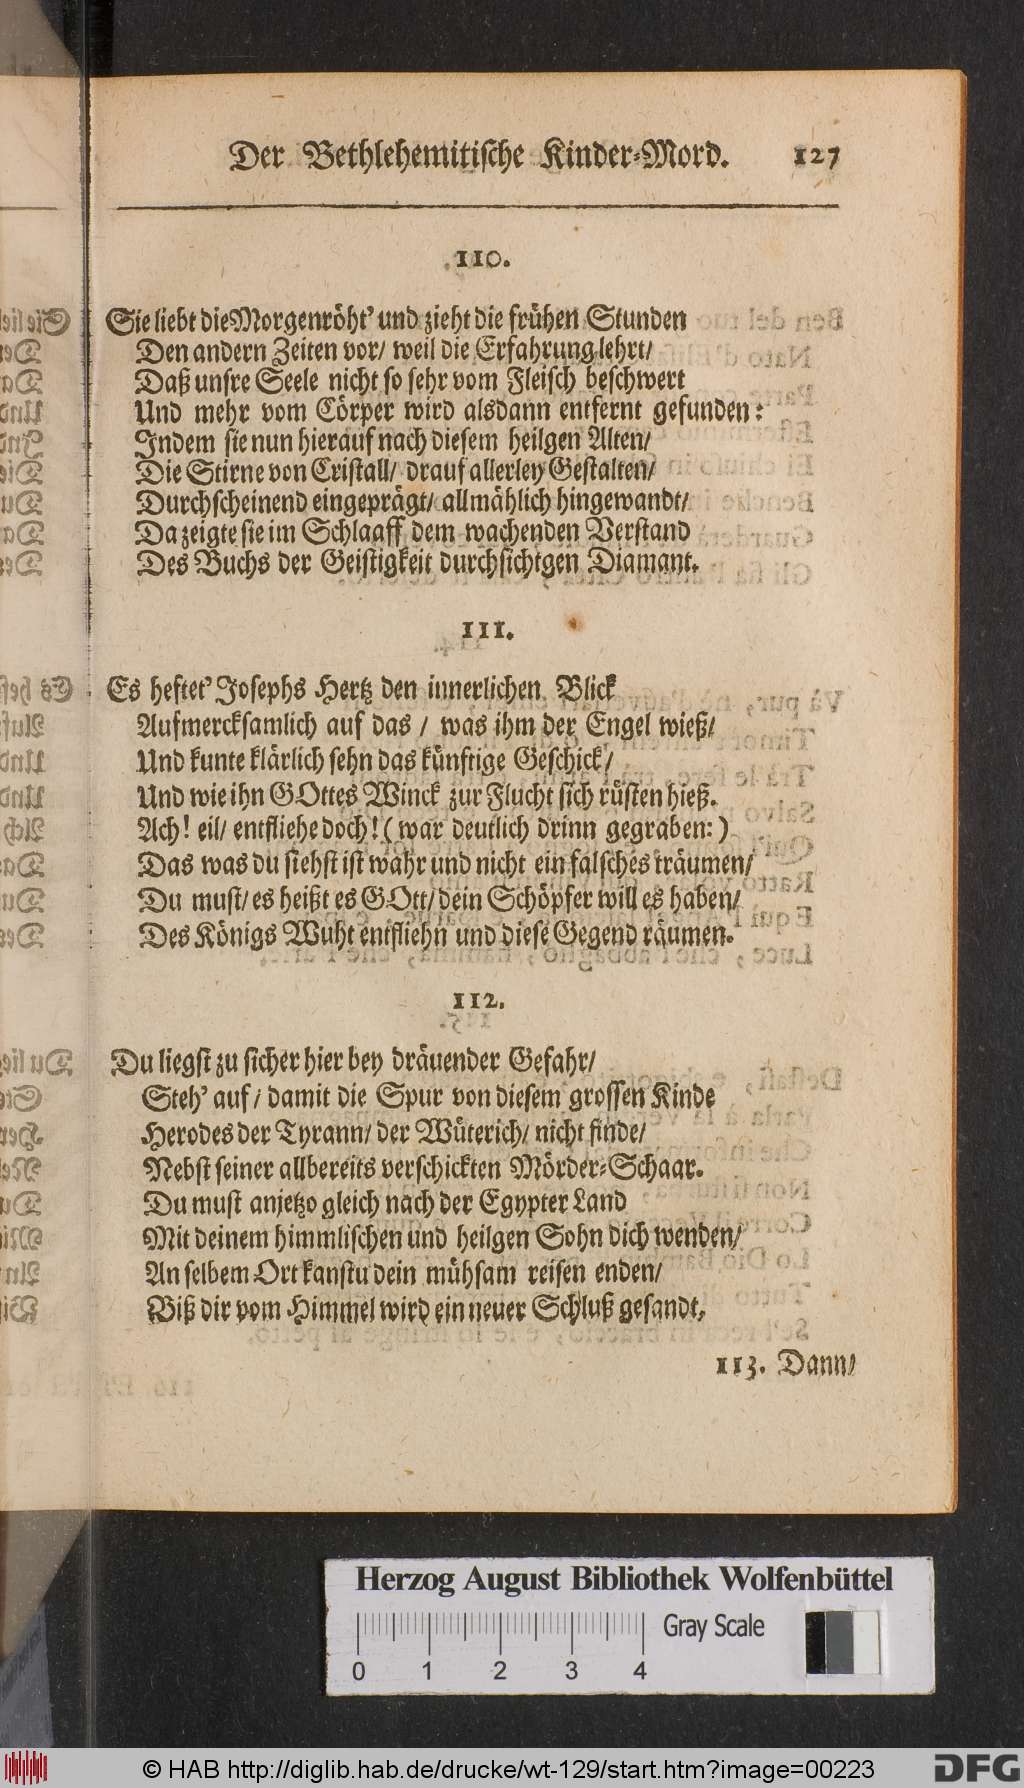 Der Bethlehemitische Kinder-Mord. 127
110.
Sie liebt die Morgenröht’ und zieht die frühen Stunden
Den andern Zeiten vor/ weil die Erfahrung lehrt/
Daß unsre Seele nicht so sehr vom Fleisch beschwert
Und mehr vom Cörper wird alsdann entfernt gefunden:
Indem sie nun hierauf nach diesem heilgen Alten/
Die Stirne von Cristall/ drauf allerley Gestalten/
Durchscheinend eingeprägt/ allmählich hingewandt/
Da zeigte sie im Schlaaff dem wachenden Verstand
Des Buchs der Geistigkeit durchsichtgen Diamant.
111.
Es heftet’ Josephs Hertz den innerlichen Blick
Aufmercksamlich auf das / was ihm der Engel wieß/
Und kunte klärlich sehn das künftige Geschick/
Und wie ihn GOttes Winck zur Flucht sich rüsten hieß.
Ach! eil/ entfliehe doch! (war deutlich drinn gegraben:)
Das was du siehst ist wahr und nicht ein falsches träumen/
Du must/ es heißt es GOtt/ dein Schöpfer will es haben/
Des Königs Wuht entfliehn und diese Gegend räumen.
112.
Du liegst zu sicher hier bey dräuender Gefahr/
Steh’ auf/ damit die Spur von diesem grossen Kinde
Herodes der Tyrann/ der Wüterich/ nicht finde/
Nebst seiner allbereits verschickten Mörder-Schaar.
Du must anjetzo gleich nach der Egypter Land
Mit deinem himmlischen und heilgen Sohn dich wenden/
An selbem Ort kanstu dein mühsam reisen enden/
Biß dir vom Himmel wird ein neuer Schluß gesandt.
113. Dann/
Herzog August Bibliothek Wolfenbüttel
Gray Scale
0 1 2 3 4
© HAB http://diglib.hab.de/drucke/wt-129/start.htm?image=00223
DFG